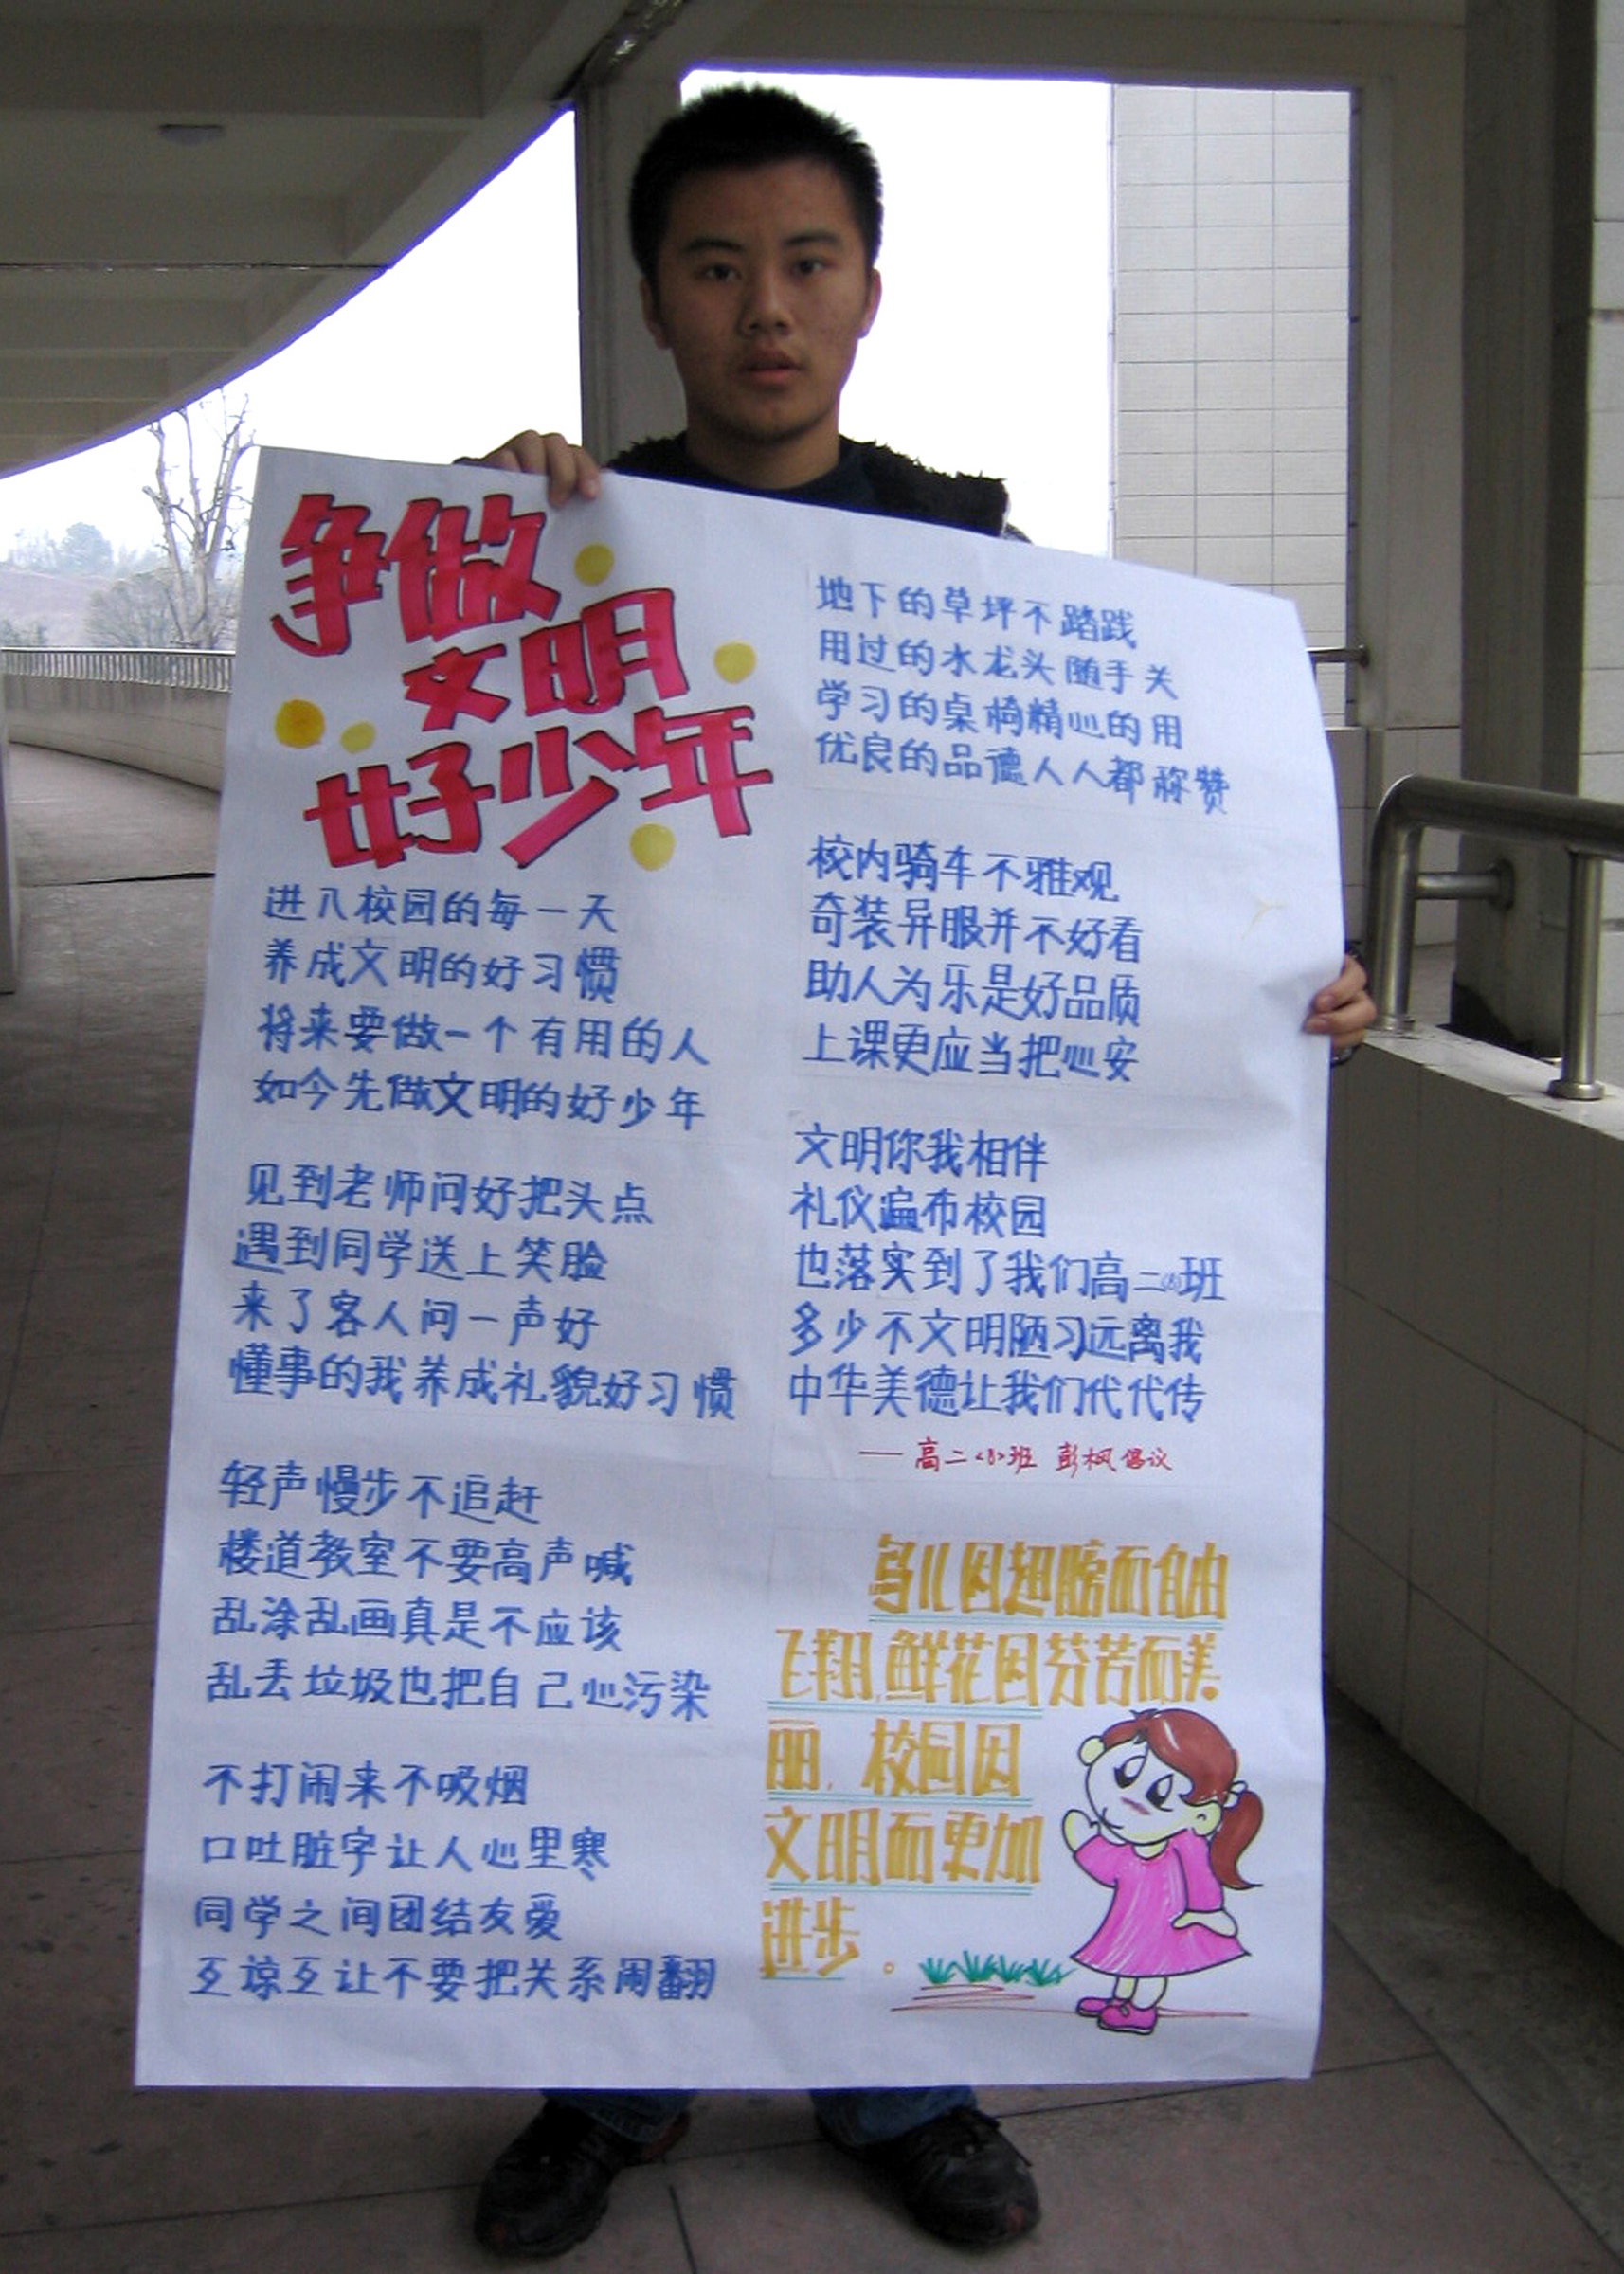 争做
文明
好少年
进入校园的每一天
养成文明的好习惯
将来要做一个有用的人
如今先做文明的好少年
见到老师问好把头点
遇到同学送上笑脸
来了客人问一声好
懂事的我养成礼貌好习惯
轻声慢步不追赶
楼道教室不要高声喊
乱涂乱画真是不应该
乱丢垃圾也把自己心污染
不打闹来不吸烟
口吐脏字让人心里寒
同学之间团结友爱
互谅互让不要把关系闹翻
地下的草坪不踏践
用过的水龙头随手关
学习的桌椅精心的用
优良的品德人人都称赞
校内骑车不雅观
奇装异服并不好看
助人为乐是好品质
上课更应当把心安
文明你我相伴
礼仪遍布校园
也落实到了我们高二(8)班
多少不文明陋习远离我
中华美德让我们代代传
——高二<8>班 彭枫倡议
鸟儿因翅膀而自由
飞翔,鲜花因芬芳而美
丽,校园因
文明而更加
进步。